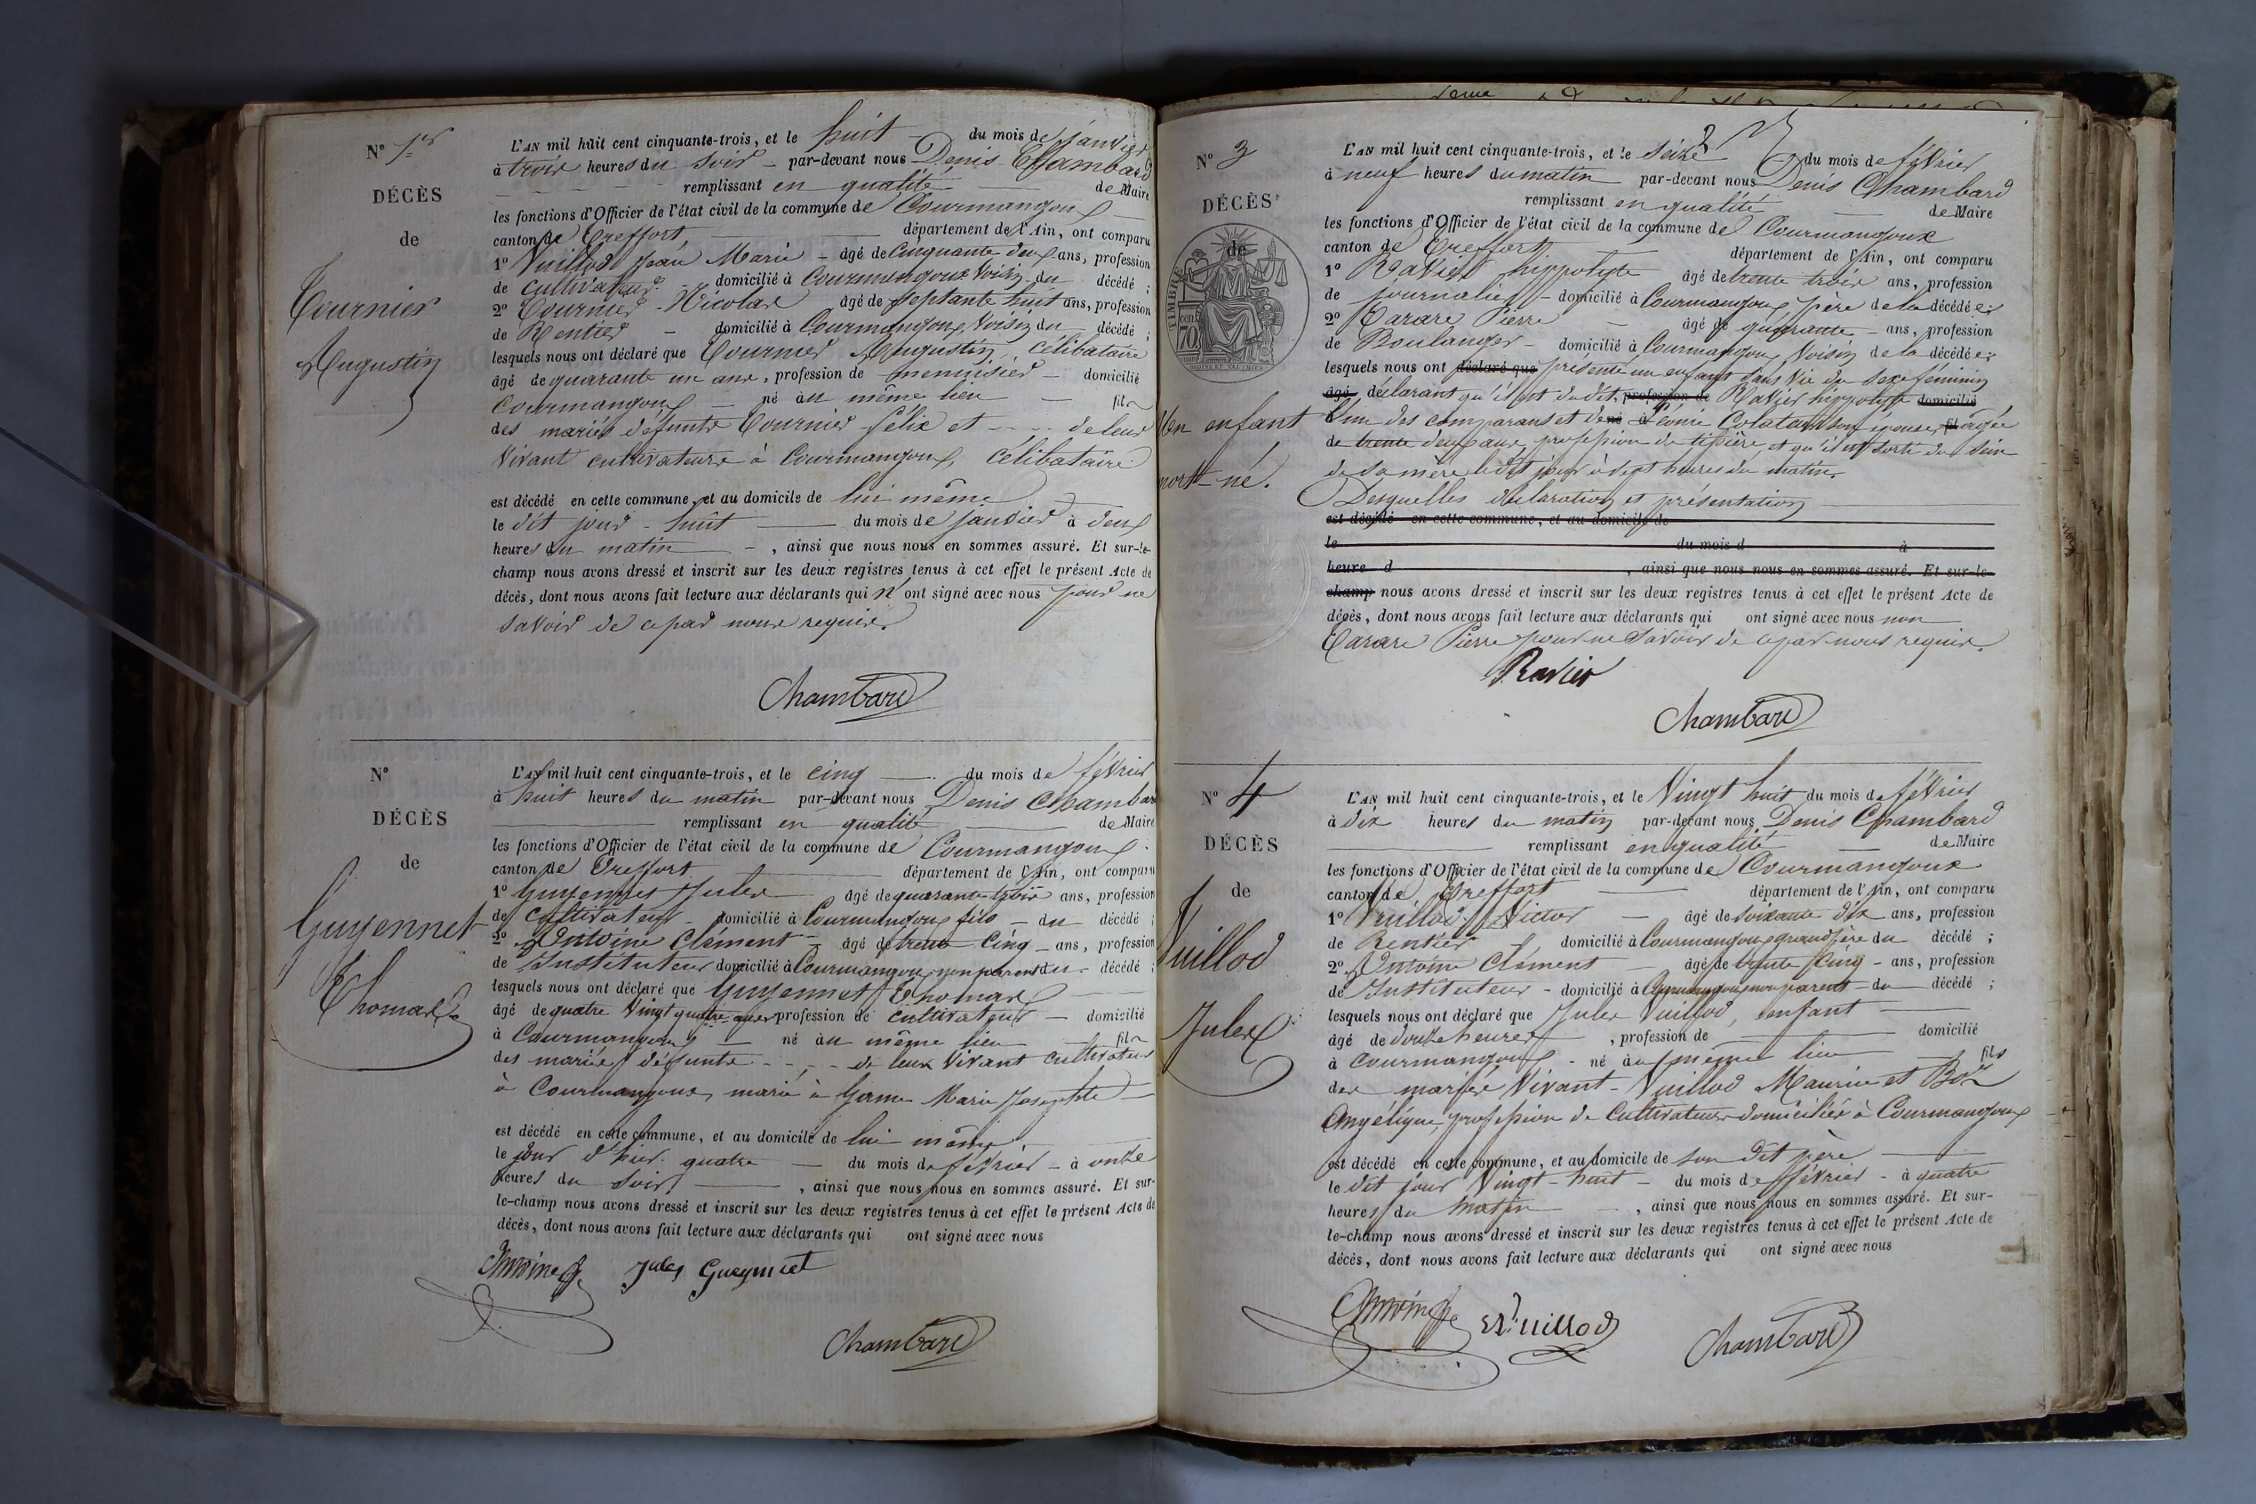 N° 1er
DÉCÈS
de
Tournier
Augustin
L'AN mil huit cent cinquante-trois, et le huit du mois de janvier
à trois heures du soir par-devant nous Denis Chambard
remplissant en qualité de Maire
les fonctions d'Officier de l'état civil de la commune de Courmangoux
canton de Treffort, département de l'Ain, ont comparu
1° Vuillod Jean Marie âgé de Cinquante deux ans, profession
de cultivateur domicilié à Courmangoux Voisin du décédé ;
2° Tournier Nicolas âgé de septante huit ans, profession
de Rentier domicilié à Courmangoux Voisin du décédé ;
lesquels nous ont déclaré que Tournier Augustin, célibataire
âgé de quarante un ans, profession de menuisier domicilié
Courmangoux né au même lieu fils
des mariés défunts Tournier félix et de leur
Vivant cultivateurs à Courmangoux, célibataire
est décédé en cette commune, et au domicile de lui même
le dit jour huit du mois de janvier à deux
heures du matin, ainsi que nous nous en sommes assuré. Et sur-le-
champ nous avons dressé et inscrit sur les deux registres tenus à cet effet le présent Acte de
décès, dont nous avons fait lecture aux déclarants qui n'ont signé avec nous pour ne
savoir de ce par nous requis.
Chambard
N°
DÉCÈS
de
Guyennet
Thomas
L'AN mil huit cent cinquante-trois, et le cinq du mois de février
à huit heures du matin par-devant nous Denis Chambard
remplissant en qualité de Maire
les fonctions d'Officier de l'état civil de la commune de Courmangoux
canton de Treffort département de l'Ain, ont comparu
1° Guyennet Jules âgé de quarante trois ans, profession
de cultivateur domicilié à Courmangoux fils du décédé ;
2° Antoine Clément âgé de trente Cinq ans, profession
de Instituteur domicilié à Courmangoux, non parent du décédé ;
lesquels nous ont déclaré que Guyennet Thomas
âgé de quatre Vingt quatre ans profession de cultivateur domicilié
à Courmangoux né au même lieu fils
des mariés défunts de leur Vivant cultivateurs
à Courmangoux, marié à Marie Josephte
est décédé en cette commune, et au domicile de lui même
le jour d'hier quatre du mois de février à onze
heures du soir, ainsi que nous nous en sommes assuré. Et sur-
le-champ nous avons dressé et inscrit sur les deux registres tenus à cet effet le présent Acte de
décès, dont nous avons fait lecture aux déclarants qui ont signé avec nous
Antoine Jules Gueynnet
Chambard
N° 3
DÉCÈS
de
TIMBRE
70
Un enfant
mort-né.
L'AN mil huit cent cinquante-trois, et le seize du mois de février
à neuf heures du matin par-devant nous Denis Chambard
remplissant en qualité de Maire
les fonctions d'Officier de l'état civil de la commune de Courmangoux
canton de Treffort département de l'Ain, ont comparu
1° Ravier hippolyte âgé de trente trois ans, profession
de journalier domicilié à Courmangoux père de la décédée ;
2° Tarare Pierre âgé de quarante ans, profession
de Boulanger domicilié à Courmangoux Voisin de la décédée ;
lesquels nous ont déclaré que présenté un enfant sans Vie du sexe féminin
âgé déclarant qu'il est du dit profession de Ravier hippolyte domicilié
l'un des comparans et de né à Léonie son épouse, fil âgée
de trente deux ans, profession de et qu'il est sorti du sein
de sa mère le dit jour à sept heures du matin.
Desquelles déclaration et présentation
est décédé en cette commune, et au domicile de
le du mois d à
heure d , ainsi que nous nous en sommes assuré. Et sur-le-
champ nous avons dressé et inscrit sur les deux registres tenus à cet effet le présent Acte de
décès, dont nous avons fait lecture aux déclarants qui ont signé avec nous non
Tarare Pierre pour ne savoir de ce par nous requis.
Ravier
Chambard
N° 4
DÉCÈS
de
Vuillod
Jules
L'AN mil huit cent cinquante-trois, et le Vingt huit du mois de février
à dix heures du matin par-devant nous Denis Chambard
remplissant en qualité de Maire
les fonctions d'Officier de l'état civil de la commune de Courmangoux
canton de Treffort département de l'Ain, ont comparu
1° Vuillod Victor âgé de soixante dix ans, profession
de Rentier domicilié à Courmangoux grand père du décédé ;
2° Antoine Clément âgé de trente Cinq ans, profession
de Instituteur domicilié à Courmangoux non parent du décédé ;
lesquels nous ont déclaré que Jules Vuillod, enfant
âgé de douze heures, profession de domicilié
à Courmangoux né au même lieu fils
des mariés Vivant Vuillod Maurice et
Angélique, profession de Cultivateurs domiciliés à Courmangoux
est décédé en cette commune, et au domicile de son dit père
le dit jour Vingt huit du mois de février à quatre
heures du matin, ainsi que nous nous en sommes assuré. Et sur-
le-champ nous avons dressé et inscrit sur les deux registres tenus à cet effet le présent Acte de
décès, dont nous avons fait lecture aux déclarants qui ont signé avec nous
Antoine Vuillod Chambard